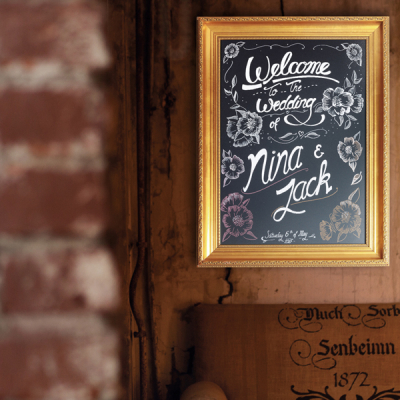 Welcome
To The
Wedding
of
Nina &
Jack
Saturday 6th of May
Much Sorb
Senbeimn
1872